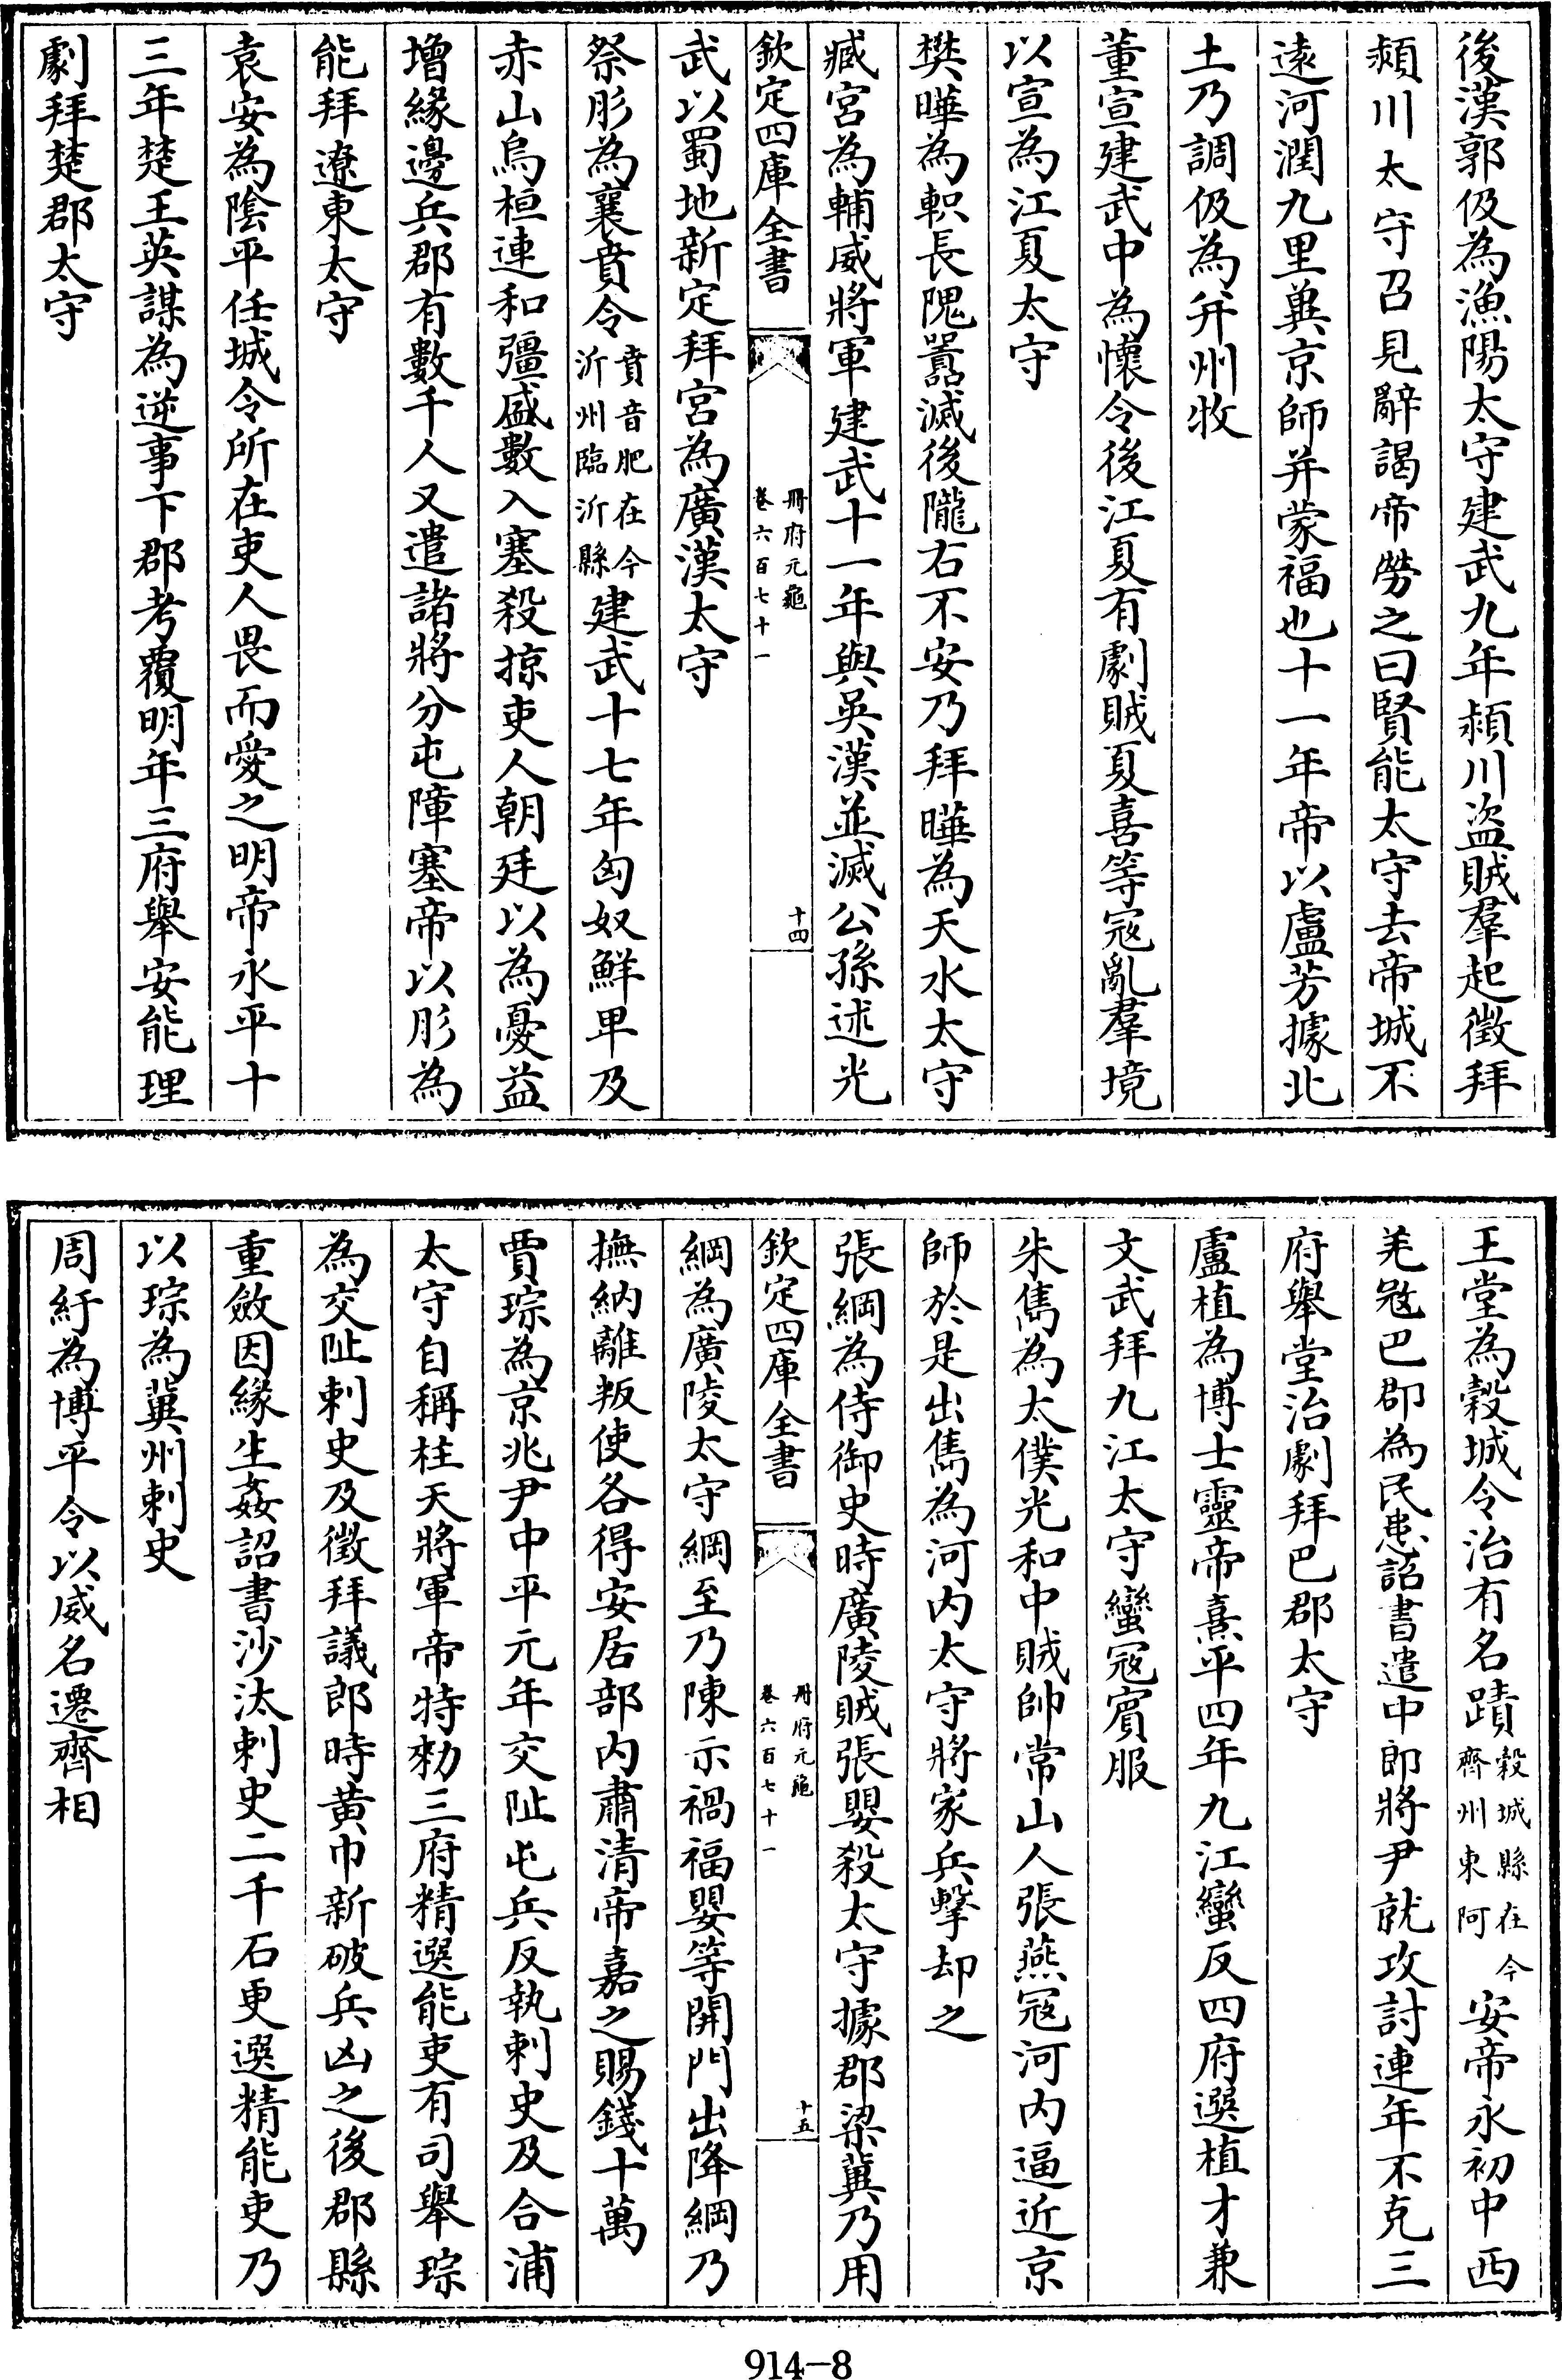 後漢郭伋為漁陽太守建武九年潁川盗賊羣起徵拜
潁川太守召見辭謁帝勞之曰賢能太守去帝城不
遠河潤九里冀京師并蒙福也十一年帝以盧芳據北
土乃調伋為并州牧
董宣建武中為懷令後江夏有劇賊夏喜等冦亂羣境
以宣為江夏太守
樊曄為軹長隗囂滅後隴右不安乃拜曄為天水太守
臧宮為輔威將軍建武十一年與吳漢並滅公孫述光
欽定四庫全書
冊府元龜
卷六百七十一
十四
武以蜀地新定拜宮為廣漢太守
祭肜為襄賁令賁音肥在今沂州臨沂縣建武十七年匈奴鮮卑及
赤山烏桓連和彊盛數入塞殺掠吏人朝廷以為憂益
增緣邊兵郡有數千人又遣諸將分屯障塞帝以肜為
能拜遼東太守
袁安為隂平任城令所在吏人畏而愛之明帝永平十
三年楚王英謀為逆事下郡考覆明年三府舉安能理
劇拜楚郡太守
王堂為穀城令治有名蹟穀城縣在今齊州東阿安帝永初中西
羌冦巴郡為民患詔書遣中郎將尹就攻討連年不克三
府舉堂治劇拜巴郡太守
盧植為博士靈帝熹平四年九江蠻反四府選植才兼
文武拜九江太守蠻冦賓服
朱雋為太僕光和中賊帥常山人張燕冦河内逼近京
師於是出雋為河内太守將家兵擊却之
張綱為侍御史時廣陵賊張嬰殺太守據郡梁冀乃用
欽定四庫全書
冊府元龜
卷六百七十一
十五
綱為廣陵太守綱至乃陳示禍福嬰等開門出降綱乃
撫納離叛使各得安居部内肅清帝嘉之賜錢十萬
賈琮為京兆尹中平元年交阯屯兵反執刺史及合浦
太守自稱柱天將軍帝特勑三府精選能吏有司舉琮
為交阯刺史及徵拜議郎時黄巾新破兵凶之後郡縣
重斂因緣生姦詔書沙汰刺史二千石更選精能吏乃
以琮為冀州刺史
周紆為博平令以威名遷齊相
914-8